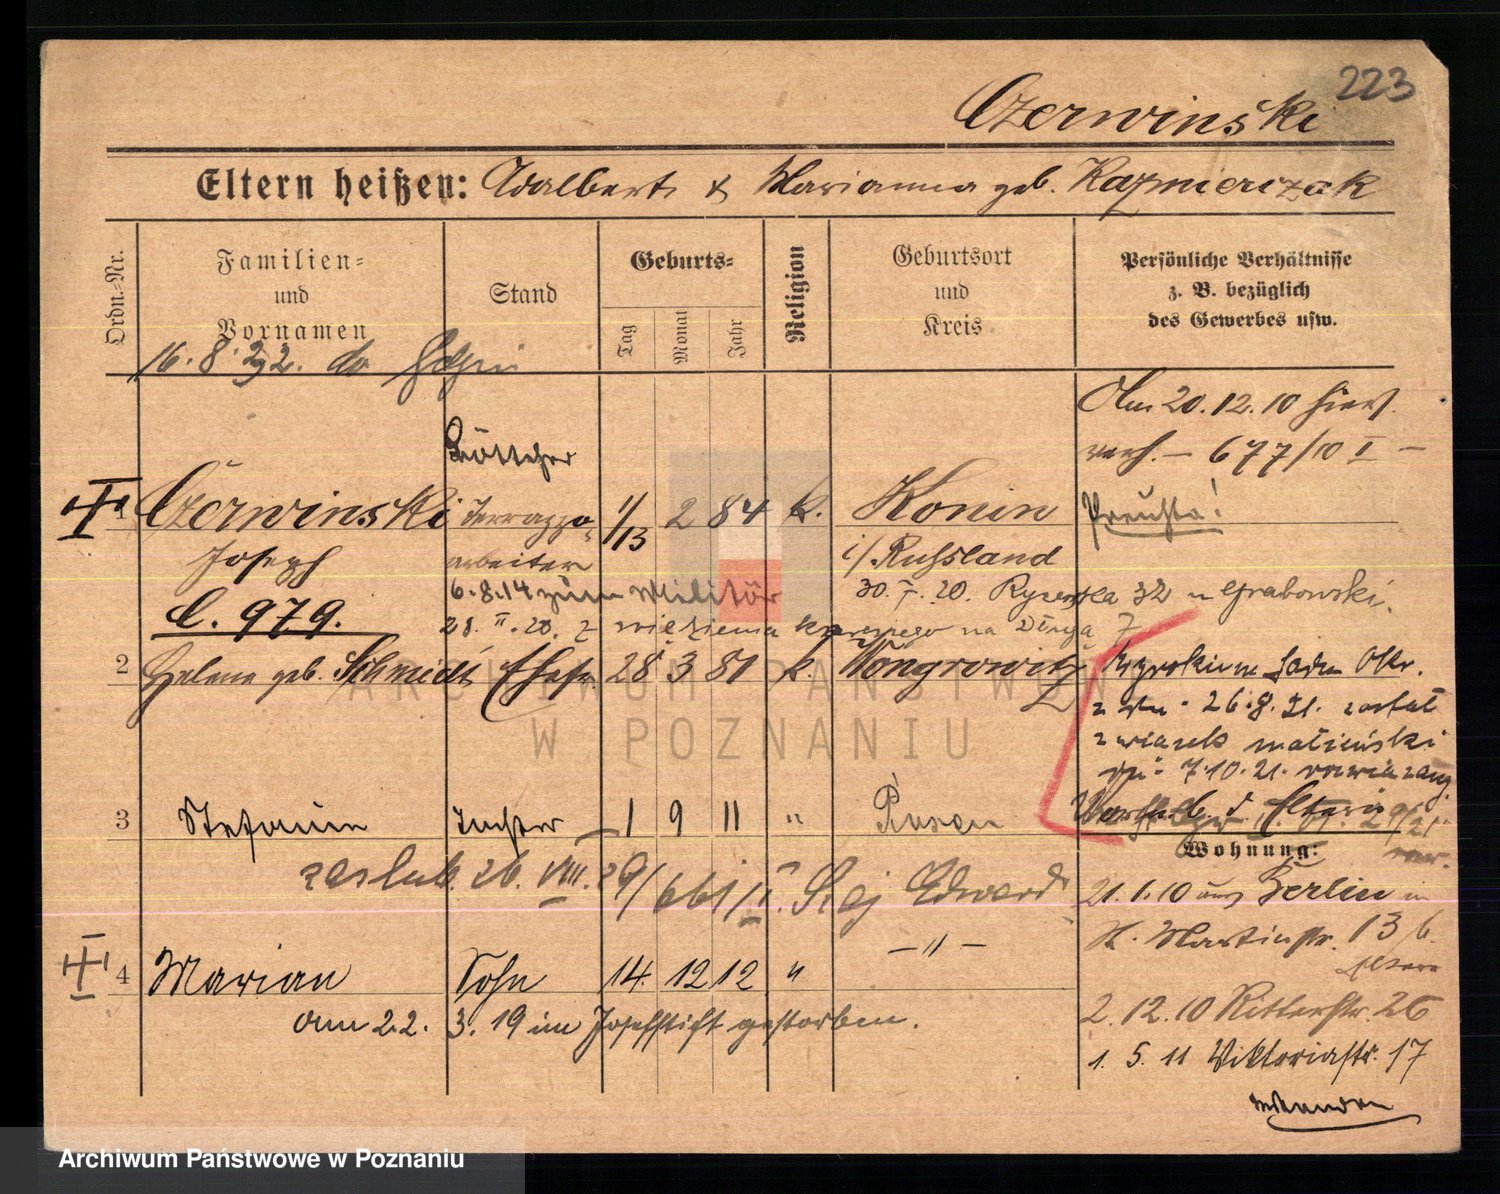 223
Czerwinski
Eltern heißen: Adalbert & Marianna geb. Kazmierczak
Ordn.-Nr.
Familien- und Vornamen
Stand
Geburts-
Tag
Monat
Jahr
Religion
Geburtsort und Kreis
Persönliche Verhältnisse
z. B. bezüglich
des Gewerbes usw.
16. 8. 22. do
Am 20.12.10 hier
verh. – 677/10 I –
Böttcher
1 Czerwinski Terrazzo- 1/13 2 84 k. Konin
Joseph arbeiter i/Russland
6.8.14 zum Militär
30. 20. 32 Grabowski.
C. 979.
28. II. 20. z więzienia na Długa 7
2 Helene geb. Schmidt Ehefr. 28 3 81 k. Wongrowitz
Wyrokiem Sądu Okr.
z dn. 26.8.21. został
związek małżeński
7.10.21. rozwiązany
3 Tochter 1 9 11 " Posen
Wohnung:
zaślub. 26. VIII. 29/661/I. Edward
21.1.10 aus Berlin in
St. Martinstr. 13 b.
4 Marian Sohn 14. 12 12 " – " –
am 22. 3. 19 im Josefstift gestorben.
2. 12. 10 Ritterstr. 26
1. 5. 11 Viktoriastr. 17
wenden
ARCHIWUM PAŃSTWOWE
W POZNANIU
Archiwum Państwowe w Poznaniu